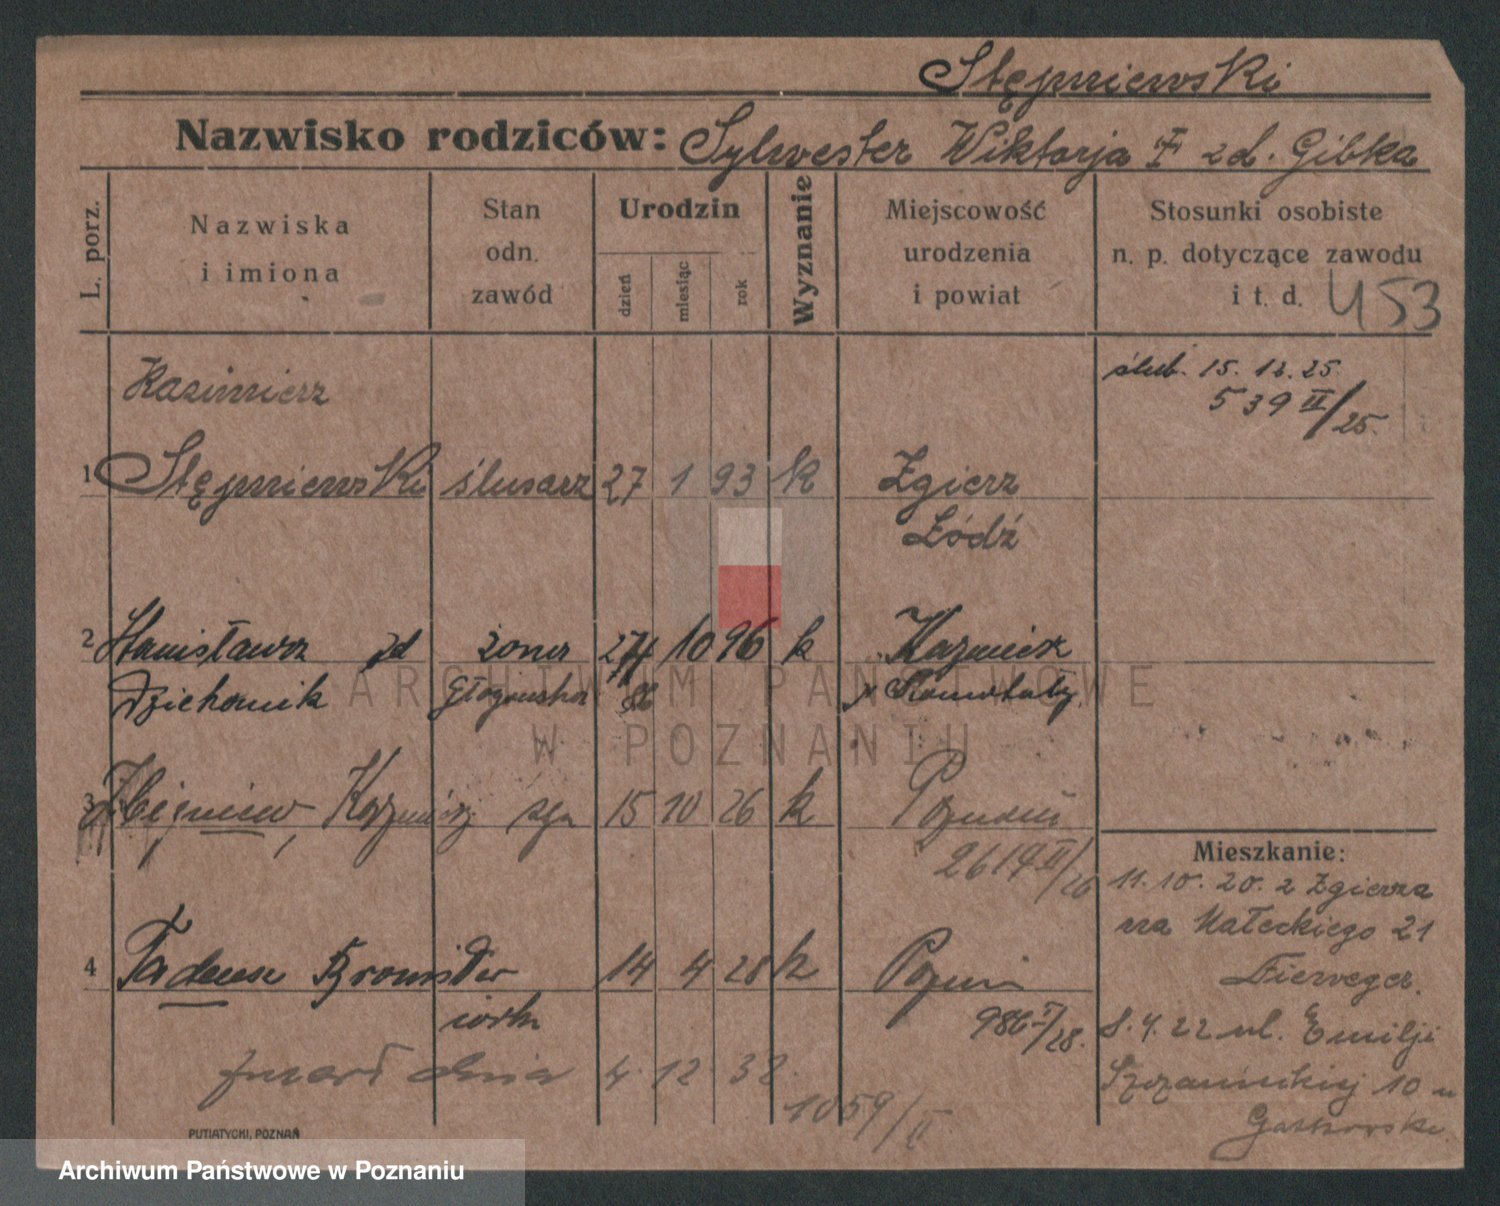 Stępniewski
Nazwisko rodziców: Sylwester Wiktorja z d. Gibka
L. porz.
Nazwiska
i imiona
Stan
odn.
zawód
Urodzin
dzień
miesiąc
rok
Wyznanie
Miejscowość
urodzenia
i powiat
Stosunki osobiste
n. p. dotyczące zawodu
i t. d. 453
Kazimierz
ślub. 15. 12. 25.
539 II/25.
1 Stępniewski ślusarz 27 1 93 k Zgierz
Łódź
2 Stanisława zd żona 10 96 k Kazmierz
Dziekanik
3 Zbigniew, Kazimierz syn 15 10 26 k Poznań
2614 II/26
Mieszkanie:
11. 10. 20. z Zgierza
na Małeckiego 21
4 Tadeusz Bronisław 14 4 28 k Poznań
986 I/28.
8. 4. 22 ul. Emilji
Szczanieckiej 10 u
zmarł dnia 4. 12 38.
1059/II
PUTIATYCKI, POZNAŃ
ARCHIWUM PAŃSTWOWE
W POZNANIU
Archiwum Państwowe w Poznaniu